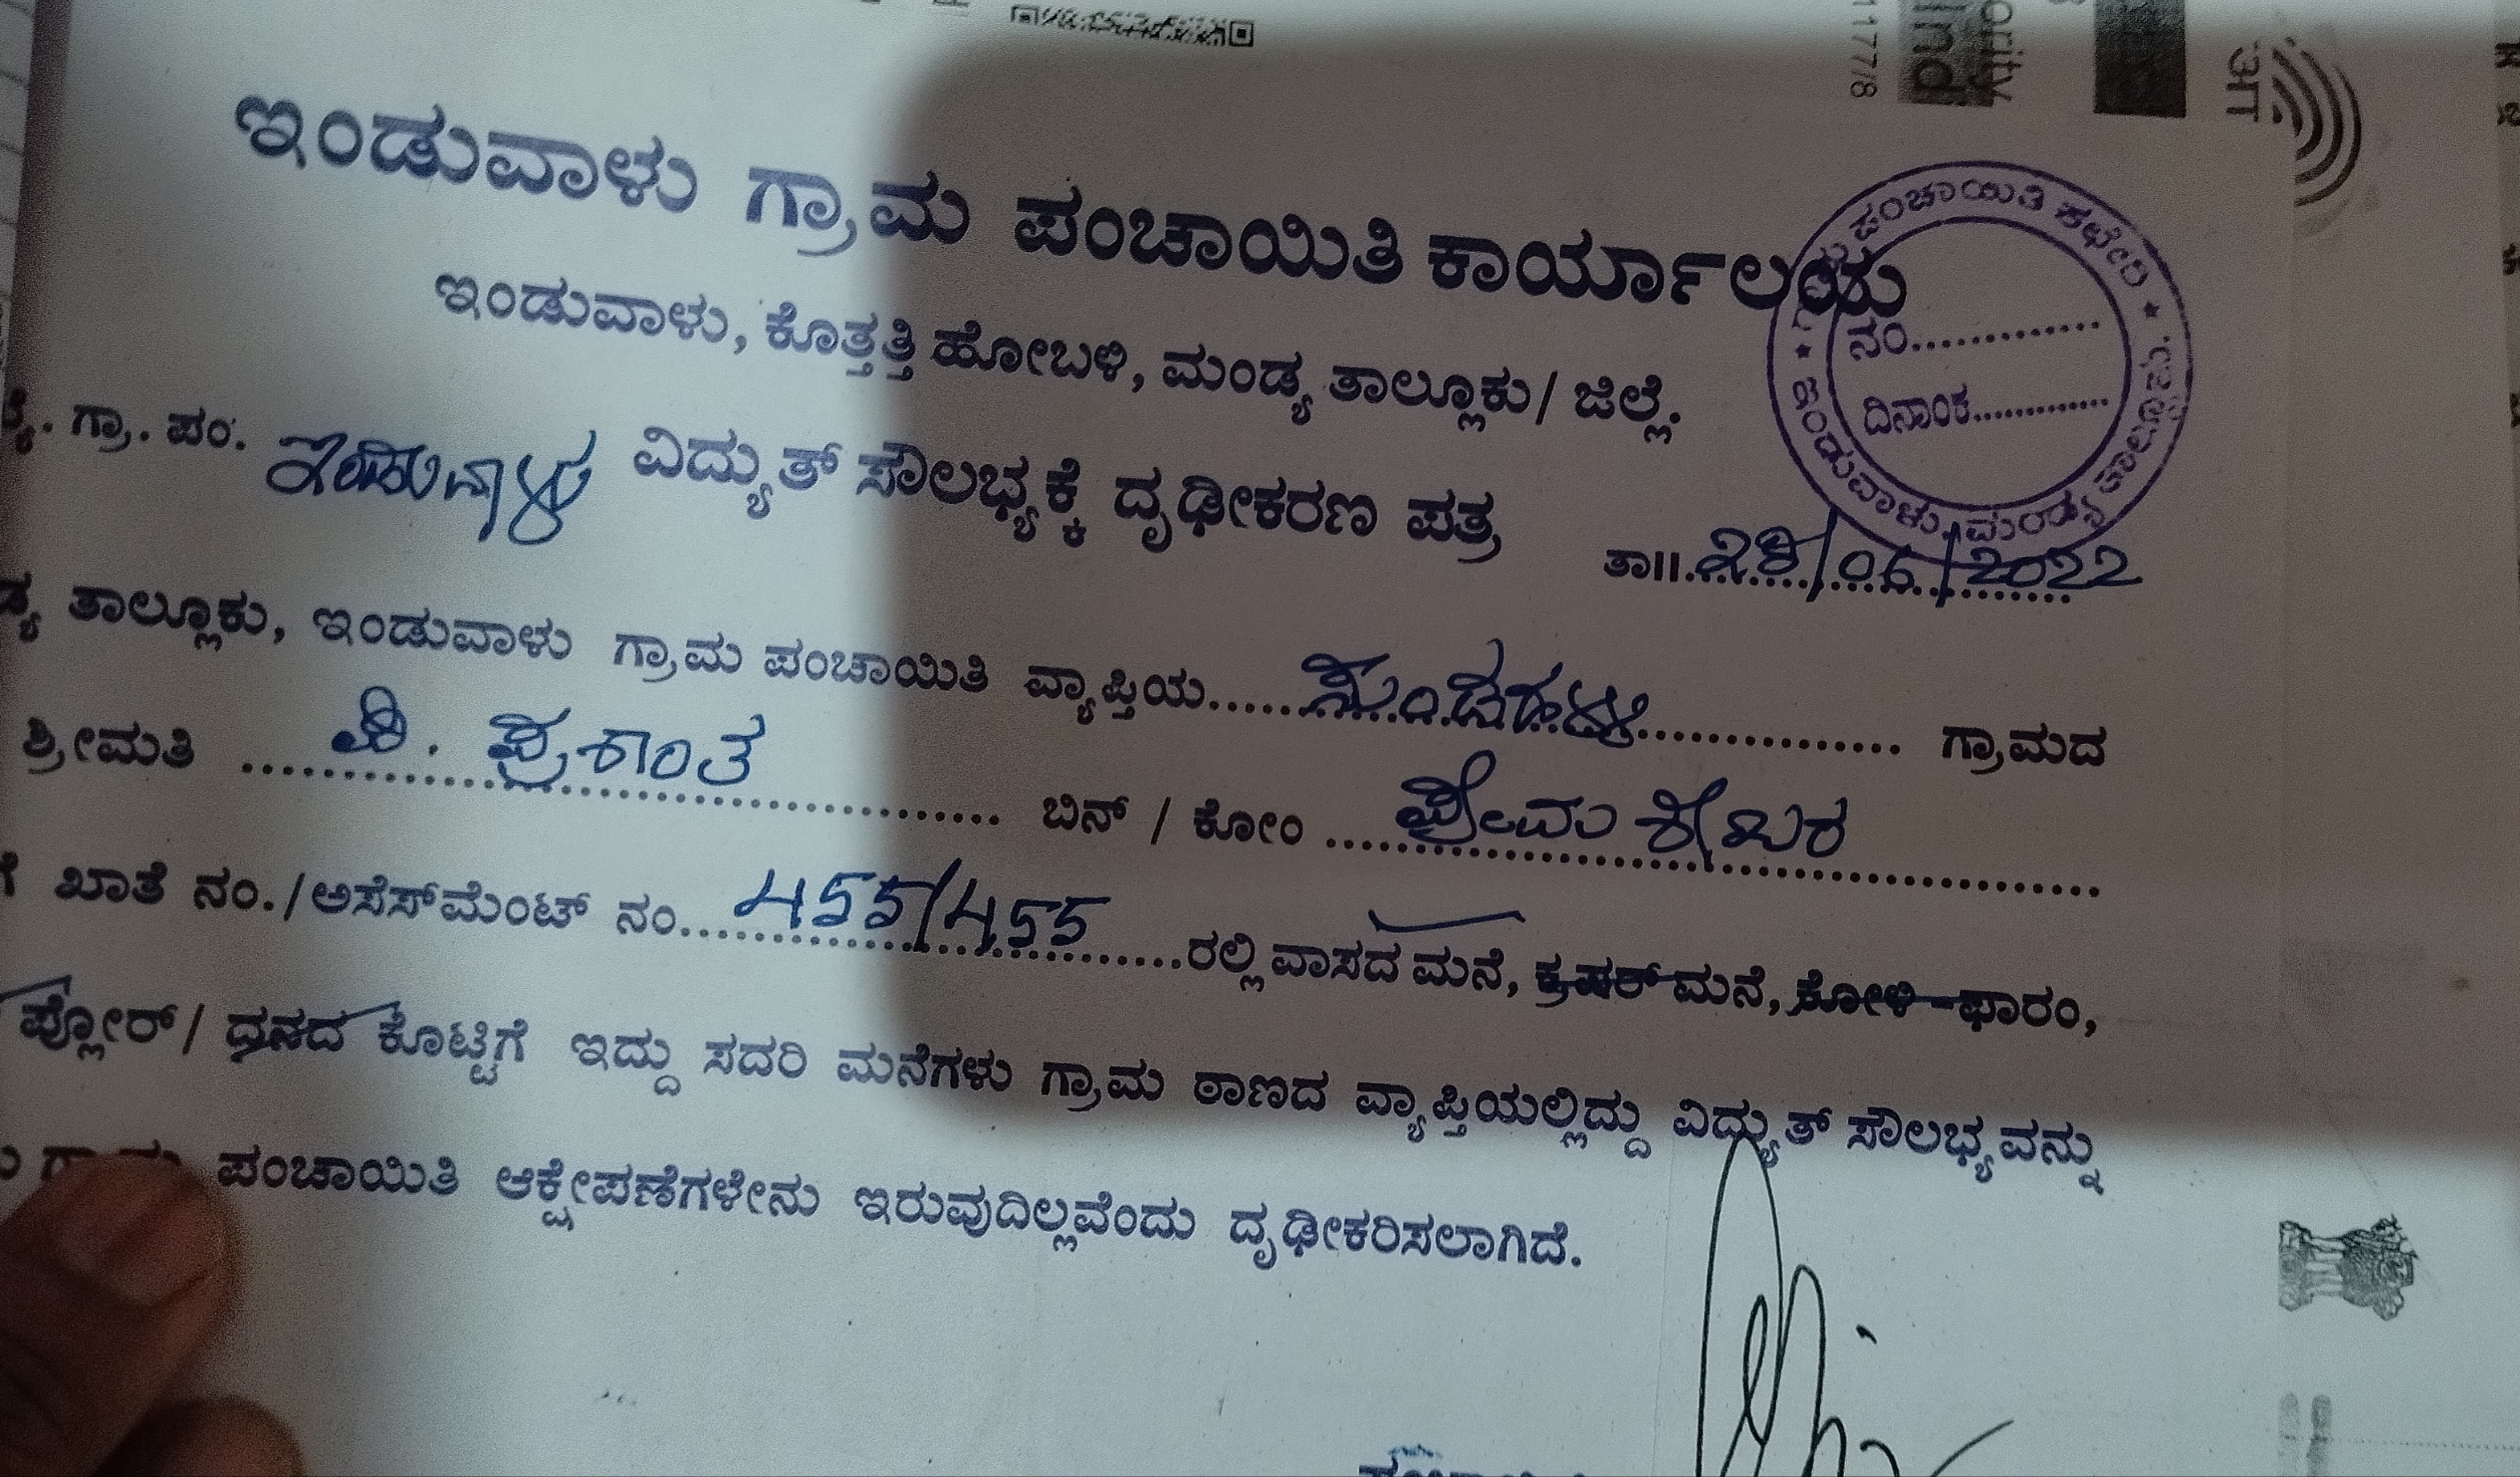 ಇಂಡುವಾಳು ಗ್ರಾಮ ಪಂಚಾಯಿತಿ ಕಾರ್ಯಾಲಯ
ಇಂಡುವಾಳು, ಕೊತ್ತತ್ತಿ ಹೋಬಳಿ, ಮಂಡ್ಯ ತಾಲ್ಲೂಕು/ ಜಿಲ್ಲೆ.
ಪಂಚಾಯಿತಿ ಕಛೇರಿ * ಇಂಡುವಾಳು, ಮಂಡ್ಯ
ನಂ.............
ದಿನಾಂಕ.............
ಗ್ರಾ. ಪಂ. ಇಂಡುವಾಳು ವಿದ್ಯುತ್ ಸೌಲಭ್ಯಕ್ಕೆ ದೃಢೀಕರಣ ಪತ್ರ
ತಾ॥ 28/06/2022
ತಾಲ್ಲೂಕು, ಇಂಡುವಾಳು ಗ್ರಾಮ ಪಂಚಾಯಿತಿ ವ್ಯಾಪ್ತಿಯ..... ............... ಗ್ರಾಮದ
ಶ್ರೀಮತಿ ............ ಪ್ರಶಾಂತ ............ ಬಿನ್ / ಕೋಂ ..... ಪ್ರೇಮ ಶೇಖರ ...............
ಖಾತೆ ನಂ./ಅಸೆಸ್‌ಮೆಂಟ್ ನಂ...455/455......ರಲ್ಲಿ ವಾಸದ ಮನೆ, ಕ್ರಷರ್ ಮನೆ, ಕೋಳಿ ಫಾರಂ,
ಪ್ಲೋರ್/ ಧನದ ಕೊಟ್ಟಿಗೆ ಇದ್ದು ಸದರಿ ಮನೆಗಳು ಗ್ರಾಮ ಠಾಣದ ವ್ಯಾಪ್ತಿಯಲ್ಲಿದ್ದು ವಿದ್ಯುತ್ ಸೌಲಭ್ಯವನ್ನು
ಗ್ರಾಮ ಪಂಚಾಯಿತಿ ಆಕ್ಷೇಪಣೆಗಳೇನು ಇರುವುದಿಲ್ಲವೆಂದು ದೃಢೀಕರಿಸಲಾಗಿದೆ.